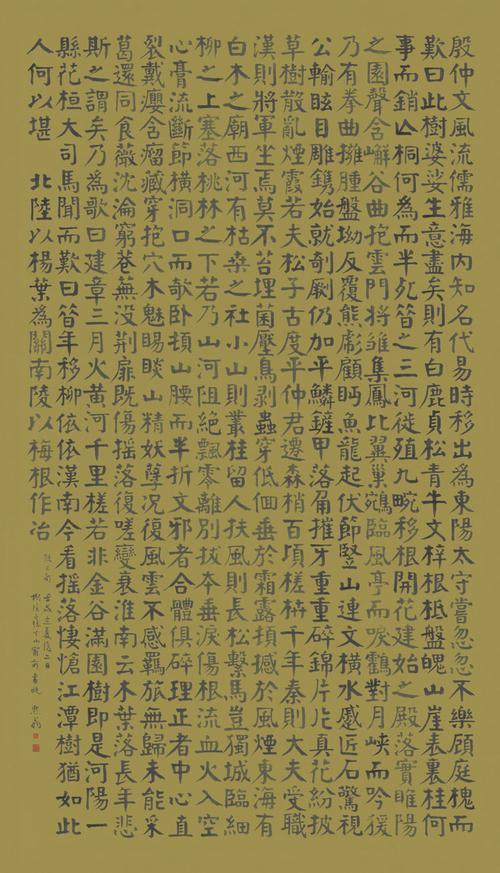 殷仲文風流儒雅海内知名代易時移出為東陽太守嘗忽忽不樂顧庭槐而
歎曰此樹婆娑生意盡矣則有白鹿貞松青牛文梓根柢盤魄山崖表裏桂何
事而銷亾桐何為而半死昔之三河徙殖九畹移根開花建始之殿落實睢陽
之園聲含嶰谷曲抱雲門將雛集鳳比翼巢鵷臨風亭而唳鶴對月峽而吟猨
乃有拳曲擁腫盤坳反覆熊彪顧眄魚龍起伏節竪山連文橫水蹙匠石驚視
公輸眩目雕鐫始就剞劂仍加平鱗鏟甲落角摧牙重重碎錦片片真花紛披
草樹散亂煙霞若夫松子古度平仲君遷森梢百頃槎枿千年秦則大夫受職
漢則將軍坐焉莫不苔埋菌壓鳥剥蟲穿低佪垂於霜露頓撼於風煙東海有
白木之廟西河有枯桑之社小山則叢桂留人扶風則長松繫馬豈獨城臨細
柳之上塞落桃林之下若乃山河阻絶飄零離別拔本垂淚傷根流血火入空
心膏流斷節橫洞口而欹卧頓山腰而半折文邪者合體俱碎理正者中心直
裂戴癭含瘤藏穿抱穴木魅睗睒山精妖孽況復風雲不感羈旅無歸未能采
葛還同食薇沈淪窮巷蕪没荆扉既傷搖落復嗟變衰淮南云木葉落長年悲
斯之謂矣乃為歌曰建章三月火黄河千里槎若非金谷滿園樹即是河陽一
縣花桓大司馬聞而歎曰昔年移柳依依漢南今看搖落悽愴江潭樹猶如此
人何以堪 北陸以楊葉為關南陵以梅根作冶